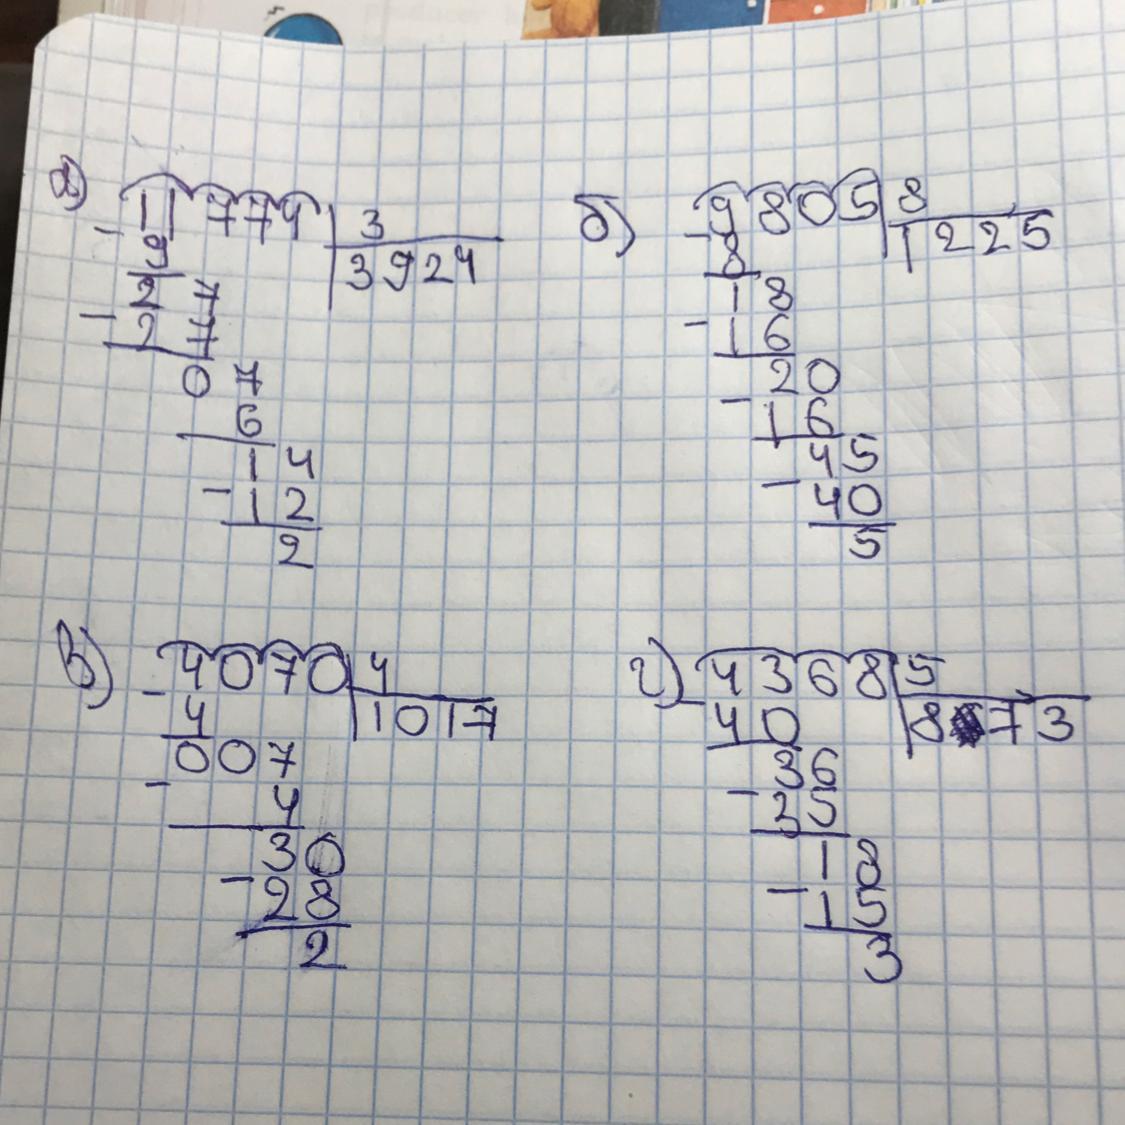 producer
а) 11774 | 3
- 9 | 3924
2 7
- 2 7
0 7
6
1 4
- 1 2
2
б) 9805 | 8
- 8 | 1225
1 8
- 1 6
2 0
- 1 6
4 5
- 4 0
5
в) 4070 | 4
- 4 | 1017
0 0 7
- 4
3 0
- 2 8
2
г) 4368 | 5
- 40 | 873
3 6
- 3 5
1 8
- 1 5
3